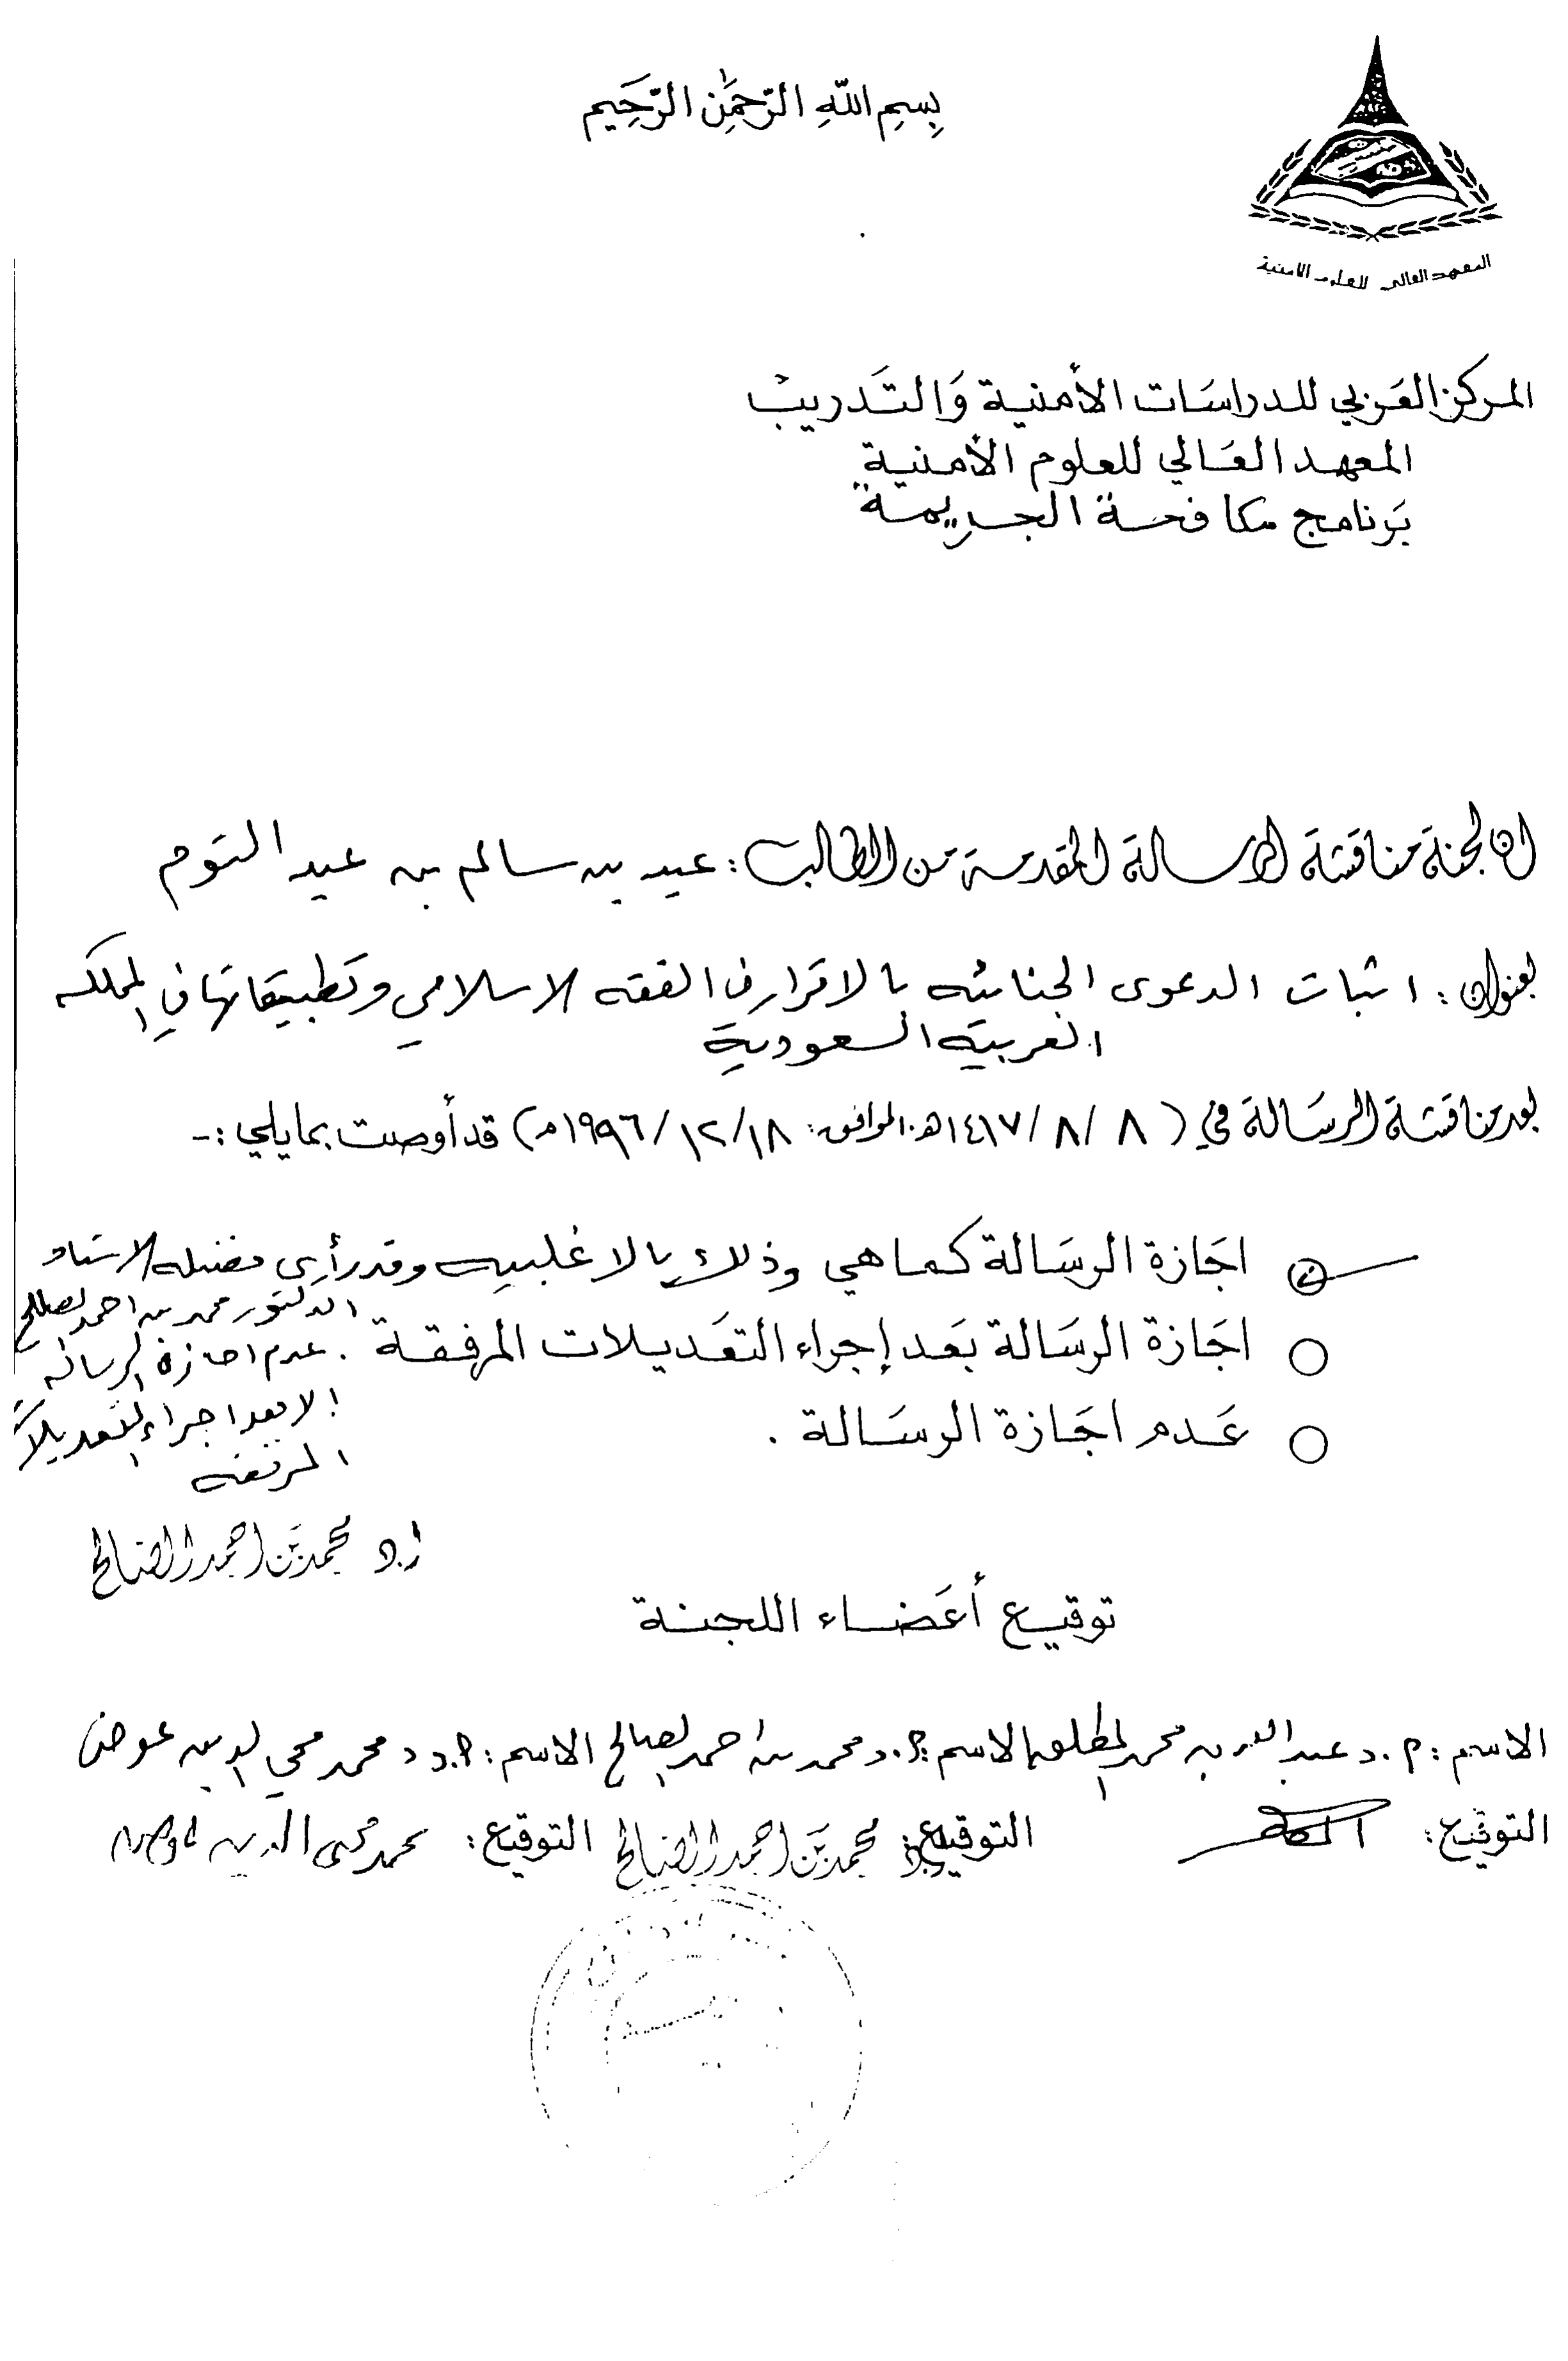 بِسمِ اللهِ الرَّحمٰنِ الرَّحِيم
المعهد العالى للعلوم الامنية
المركز العَربي للدراسَات الأمنية وَالتَدريب
المعهد العَالي للعلوم الأمنية
بَرنامج مكافحة الجريمة
ان لجنة مناقشة الرسالة المقدمة من الطالب : عيد بن سالم بن عيد التوم
بعنوان : اثبات الدعوى الجنائيه بالاقرار في الفقه الاسلامي وتطبيقاتها في المملكه
العربية السعودية
بعد مناقشة الرسَالة في ( ٨ /٨ /١٤١٧هـ الموافق: ١٨ /١٢ /١٩٩٦م ) قد أوصت بما يلي :-
اجَازة الرسَالة كما هي وذلك بالاغلبيه وقد رأى فضيله الاستاذ
الدكتور محمد بن احمد الصالح
اجَازة الرسَالة بَعد إجراء التعَديلات المرفقة . عدم اجازة الرساله
الا بعد اجراء التعديلات
عَدم اجَازة الرسَالة .
المرفقه
أ.د محمد بن احمد الصالح
توقيع أعضَاء اللجنة
الاسم : أ.د عبدالله بن محمد المطلق الاسم : أ.د محمد بن احمد الصالح الاسم : أ.د محمد محي الدين عوض
التوقيع : التوقيع : محمد بن احمد الصالح التوقيع : محمد محى الدين عوض